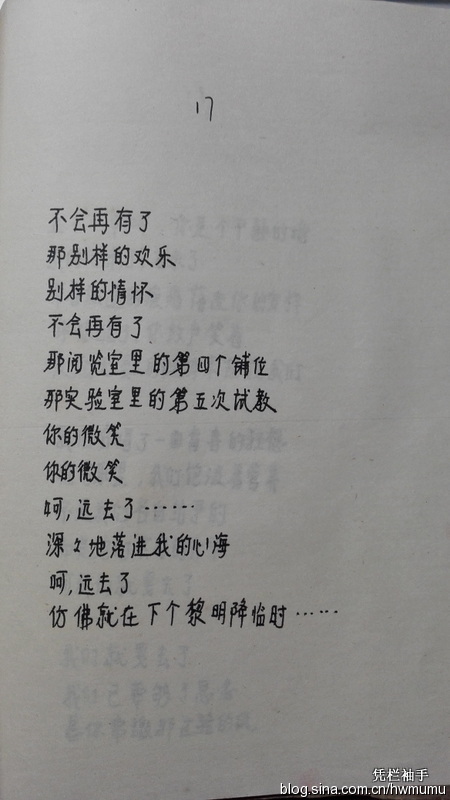 17
不会再有了
那别样的欢乐
别样的情怀
不会再有了
那阅览室里的第四个铺位
那实验室里的第五次试教
你的微笑
你的微笑
呵,远去了……
深々地落进我的心海
呵,远去了
仿佛就在下个黎明降临时……
凭栏袖手
blog.sina.com.cn/hwmumu